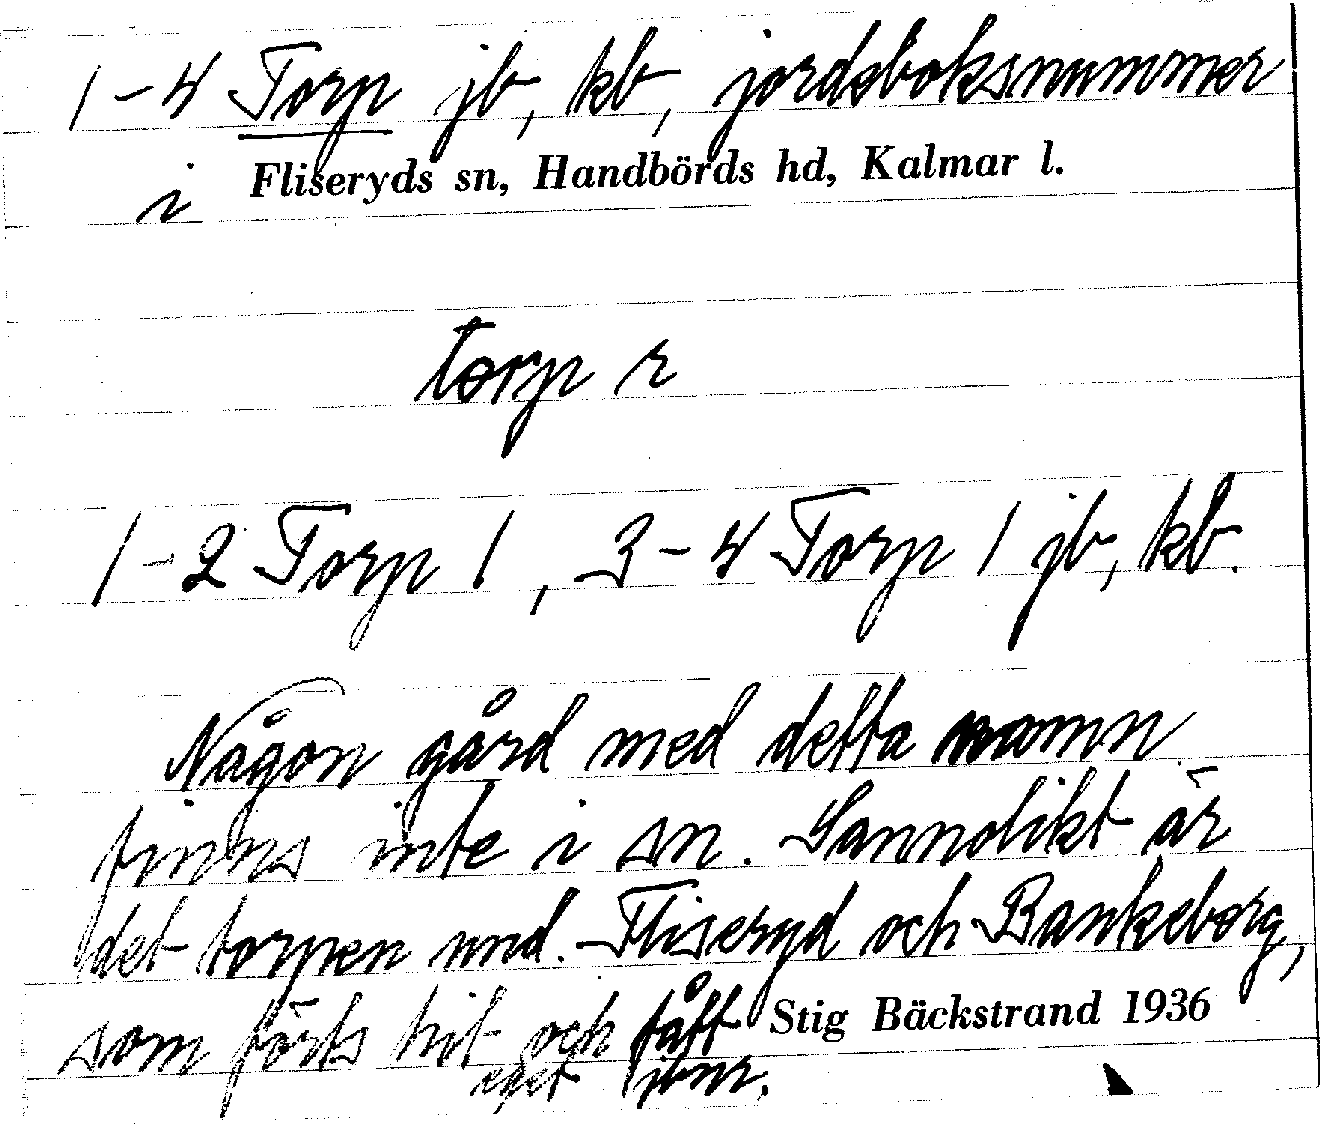 1-4 Torp jb, kb, jordsboksnummer
i Fliseryds sn, Handbörds hd, Kalmar l.
torp r
1-2 Torp 1, 3-4 Torp 1 jb, kb.
Någon gård med detta namn
finns inte i sn. Sannolikt är
det torpen und. Fliseryd och Bankeborg,
som förts hit och fått Stig Bäckstrand 1936
eget jbnr.